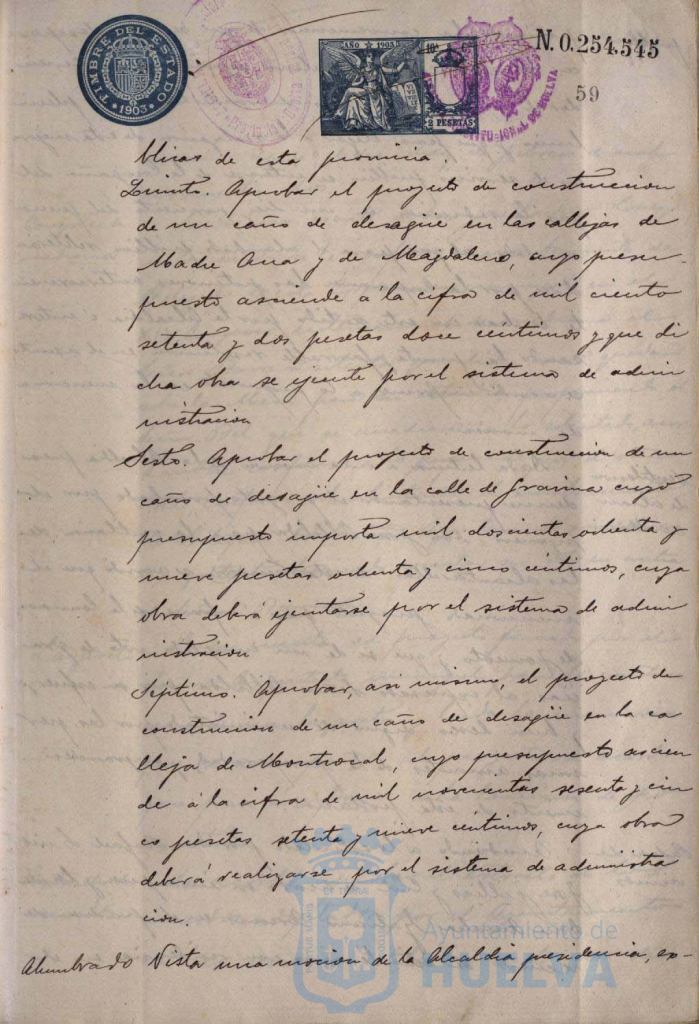 TIMBRE DEL ESTADO
1903
AÑO 1903
10ª C
2 PESETAS
N. 0.254.545
59
Minas de esta provincia.
Quinto. Aprobar el proyecto de construccion
de un caño de desagüe en las callejas de
Madre Ana y de Magdalena, cuyo presu-
puesto asciende á la cifra de mil ciento
setenta y dos pesetas doce céntimos y que di
cha obra se ejecute por el sistema de admi
nistracion
Sesto. Aprobar el proyecto de construccion de un
caño de desagüe en la calle de Gravina cuyo
presupuesto importa mil doscientas ochenta y
nueve pesetas ochenta y cinco céntimos, cuya
obra deberá ejecutarse por el sistema de admi
nistracion
Séptimo. Aprobar, asi mismo, el proyecto de
construccion de un caño de desagüe en la ca
lleja de Montrocal, cuyo presupuesto ascien
de á la cifra de mil novecientas sesenta y cin
co pesetas setenta y nueve céntimos, cuya obra
deberá realizarse por el sistema de administra
cion.
Alumbrado Vista una mocion de la Alcaldia presidencia, ex-
Ayuntamiento de
HUELVA